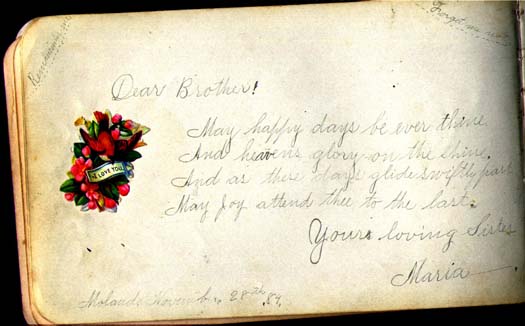 Remember me
Forget me not
Dear Brother!
May happy days be ever thine
And heavens glory on the shine.
And as these days glide swiftly past
May Joy attend thee to the last.
I LOVE YOU
Yours loving Sister
Maria
November 28th 89.